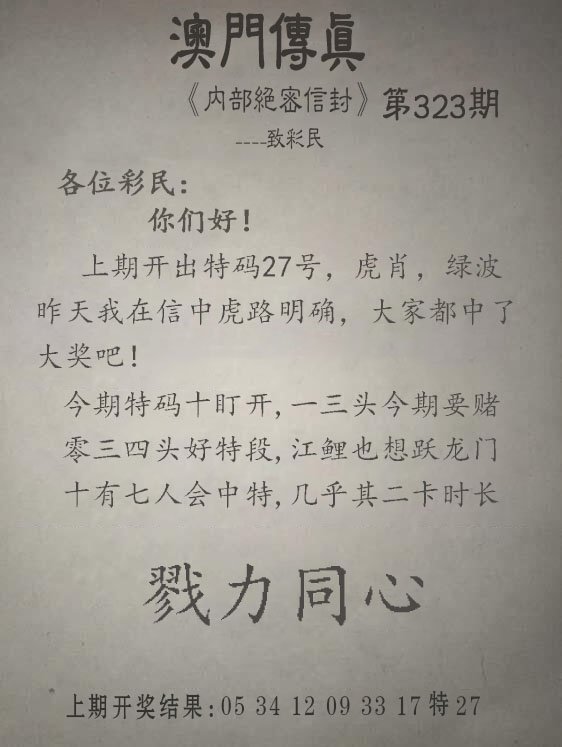 澳門傳真
《内部絕密信封》第323期
----致彩民
各位彩民：
你们好！
上期开出特码27号，虎肖，绿波
昨天我在信中虎路明确，大家都中了
大奖吧！
今期特码十盯开,一三头今期要赌
零三四头好特段,江鲤也想跃龙门
十有七人会中特,几乎其二卡时长
戮力同心
上期开奖结果:05 34 12 09 33 17特27